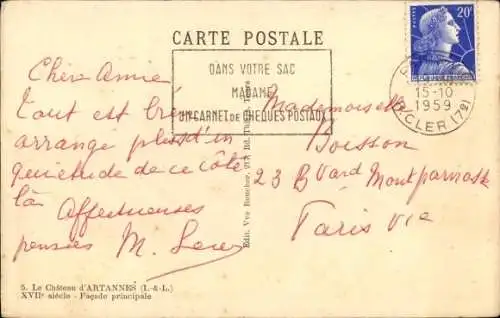 CARTE POSTALE
DANS VOTRE SAC
MADAME
UN CARNET DE CHEQUES POSTAUX
POSTES 20F
REPUBLIQUE FRANÇAISE
15-10
1959
R.CLER (79)
Chère Amie
Tout est bien
arrangé plus d'in
quiétude de ce côté
là
Affectueuses
pensées M.
Mademoiselle
Poisson
23 Bvard Montparnasse
Paris VIe
5. Le Château d'ARTANNES (I.-&-L.)
XVIIe siècle - Façade principale
Edit. Vve Bourcher, Tours